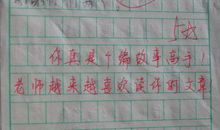 5分
你真是个编故事高手！
老师越来越喜欢读你的文章